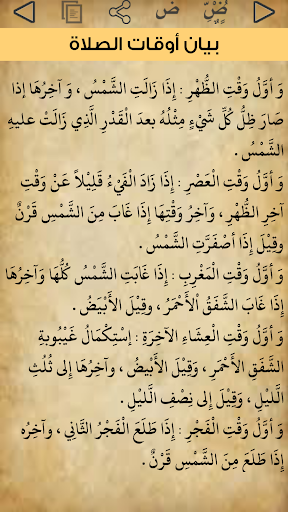 ضّ ض
بيان أوقات الصلاة
وَ أَوَّلُ وَقْتِ الظُّهْرِ : إِذَا زَالَتِ الشَّمْسُ ، وَ آخِرُهَا إذا
صَارَ ظِلُّ كُلِّ شَيْءٍ مِثْلُهُ بعدَ الْقَدْرِ الَّذِي زَالَتْ عليهِ
الشَّمْسُ .
وَ أَوَّلُ وَقْتِ الْعَصْرِ : إِذَا زَادَ الْفَيْءُ قَلِيْلاً عَنْ وَقْتِ
آخِرِ الظُّهْرِ ، وَآخِرُ وَقْتِهَا إِذَا غَابَ مِنَ الشَّمْسِ قَرْنٌ
وقِيْلَ إِذَا أصْفَرَّتِ الشَّمْسُ .
وَ أَولُ وَقْتِ الْمَغْرِبِ : إِذَا غَابَتِ الشَّمْسُ كُلُّهَا وَآخِرُهَا
إِذَا غَابَ الشَّفَقُ الْأَحْمَرُ ، وقِيْلَ الأَبْيَضُ .
وَ أَوَّلُ وَقْتِ الْعِشَاءِ الآخِرَةِ : إسْتِكْمَالُ غَيْبُوبةِ
الشَّفَقِ الأَحْمَرِ ، وَقِيْلَ الأَبْيضُ ، وآخِرُهَا إِلى ثُلُثِ
الَّليْلِ ، وَقِيْلَ إِلى نِصْفِ الَّليْلِ .
وَ أَوَّلُ وَقْتِ الْفَجْرِ : إِذَا طَلَعَ الْفَجْرُ الثَّانِي ، وآخِرُه
إِذَا طَلَعَ مِنَ الشَّمْسِ قَرْنٌ .